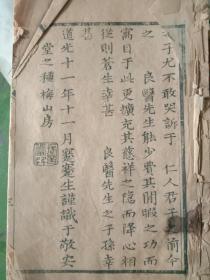 子尤不敢哭訴于　仁人君子至前今
之　良醫先生能少費其閒暇之功而
寓目于此更擴充其慈祥之隱而降心相
從則蒼生幸甚　良醫先生之子孫幸
甚
道光十一年十一月　生謹識于敬安
堂之種梅山房